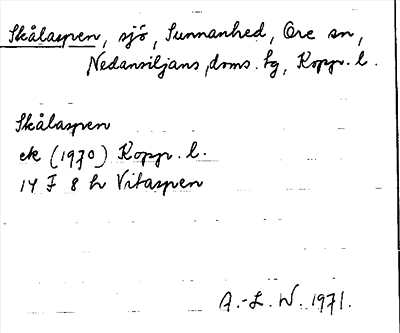 Skålaspen, sjö, Sunnanhed, Ore sn,
Nedansiljans doms. tg, Kopp. l.
Skålaspen
ek (1970) Kopp. l.
14 F 8 h Vitaspen
A.-L. W. 1971.